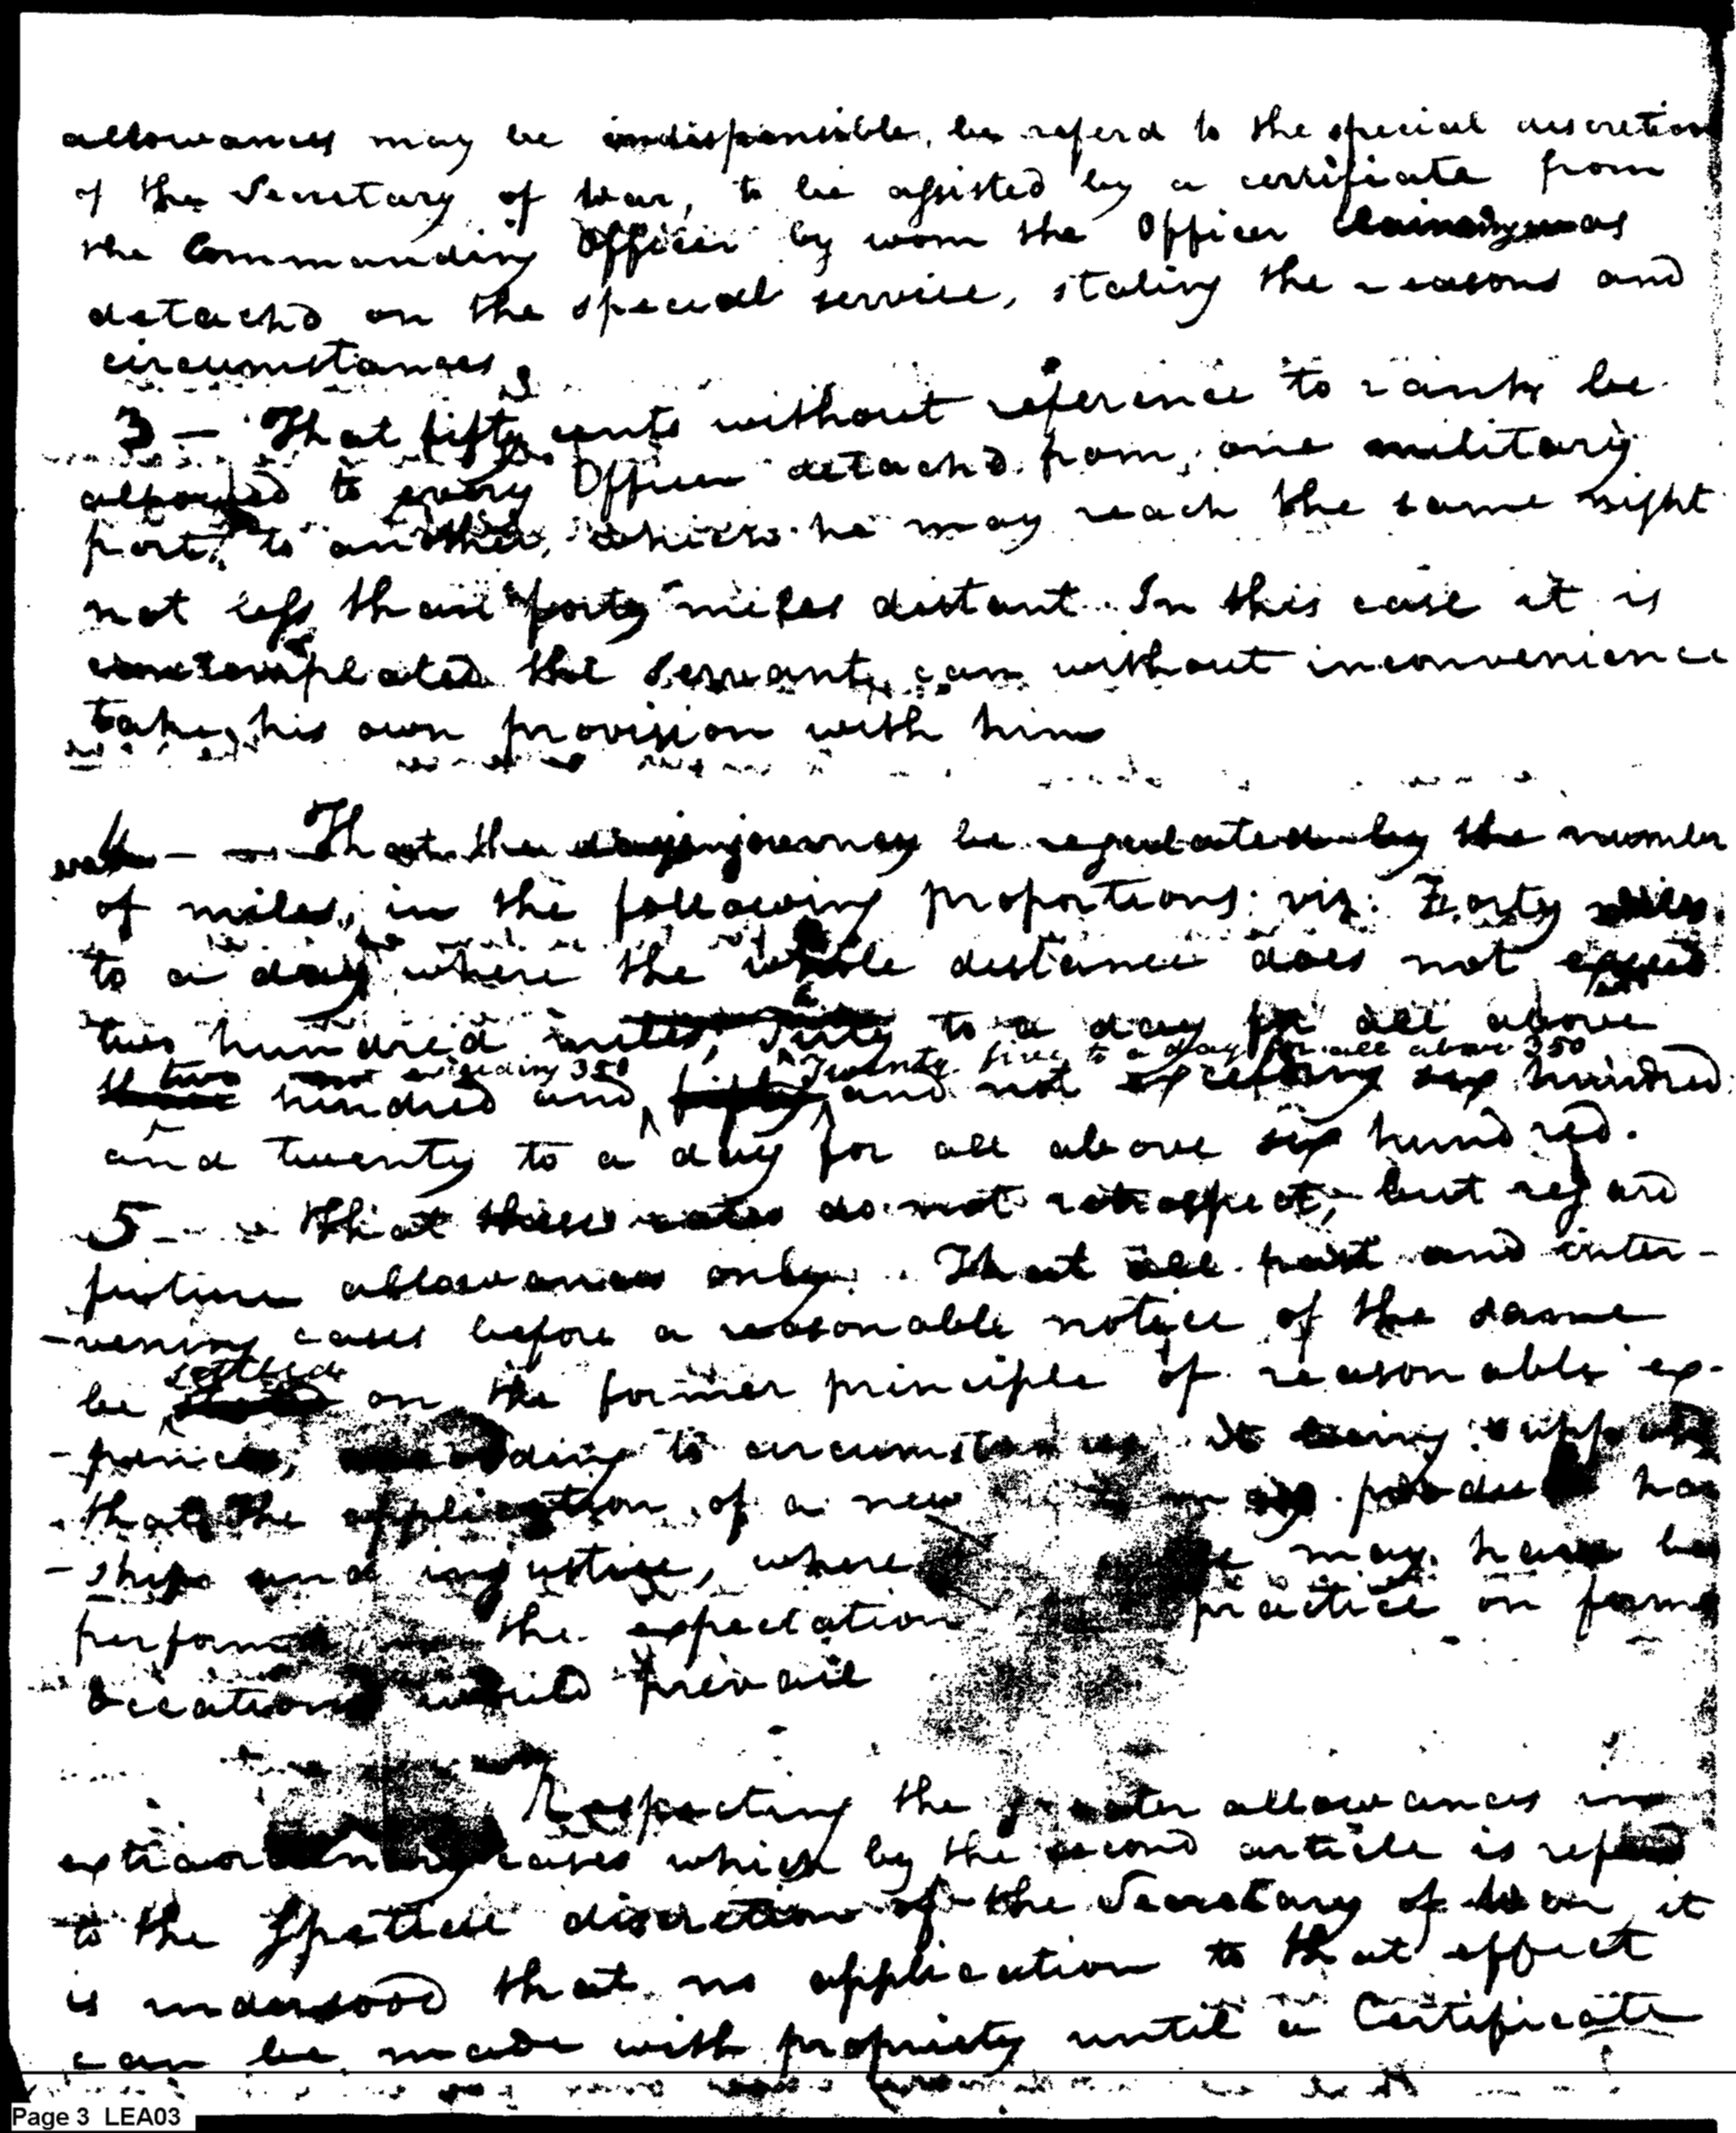 allowances may be indispensible, be referd to the special discretion
of the Secretary of War, to be assisted by a certificate from
the Commanding Officer by wom the Officer claiming was
detach'd on the special service, stating the reasons and
circumstances
3 — That fifty cents without reference to rank be
allowed to every Officer detach'd from one military
port, to another, where he may reach the same night
not less than forty miles distant. In this case it is
contemplated the Servant, can without inconvenience
take his own provision with him
4 — That the days journey be regulated by the number
of miles, in the following proportions; viz: Forty miles
to a day where the whole distance does not exceed
two hundred miles, to a day for all above
two not exceeding 350 Twenty five to a day for all above 350
hundred and and not exceeding six hundred
and twenty to a day for all above six hundred.
5 — That these rates do not retrospect, but regard
future allowances only. That all past and inter-
-vening cases before a reasonable notice of the same
settled
be on the former principle of reasonable ex-
-pences, according to circumstances it being
that the application of a new may produce
-ship and injustice, where may have
the expectation practice on
occations would prevail
Respecting the greater allowances in
extraordinary cases which by the second article is
to the discretion of the Secretary of War, it
is understood that no application to that effect
can be made with propriety until a Certificate
Page 3 LEA03